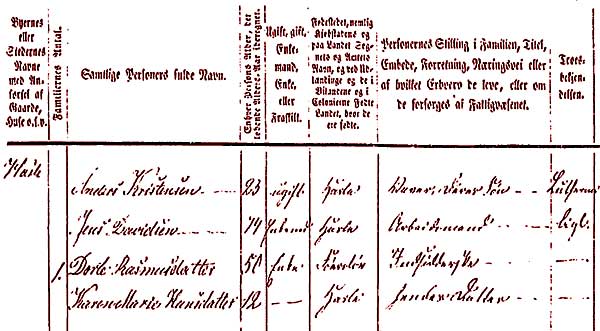 Byernes
eller
Stedernes
Navne
med An-
førsel af
Gaarde,
Huse o.s.v.
Familiernes Antal.
Samtlige Personers fulde Navn.
Enhver Persons Alder, det
løbende Alders-Aar iberegnet.
Ugift, gift,
Enke-
mand,
Enke
eller
Fraskilt.
Fødestedet, nemlig
Kjøbstadens og
paa Landet Sog-
nets og Amtets
Navn, og ved Ud-
lændinge og de i
Bilandene og i
Colonierne Fødte
Landet, hvor de
ere fødte.
Personernes Stilling i Familien, Titel,
Embede, Forretning, Næringsvei eller
af hvilket Erhverv de leve, eller om
de forsørges af Fattigvæsenet.
Troes-
bekjen-
delsen.
Anders Kristensen 23 ugift Hårlev Væver, Søn
Jens Davidsen 74 Enkemd Hårlev Arbeidsmand ligl.
1. Dorte Rasmusdatter 50 Enke Indsidderske
Karen Marie Hansdatter 12 — — Hårlev hendes Datter